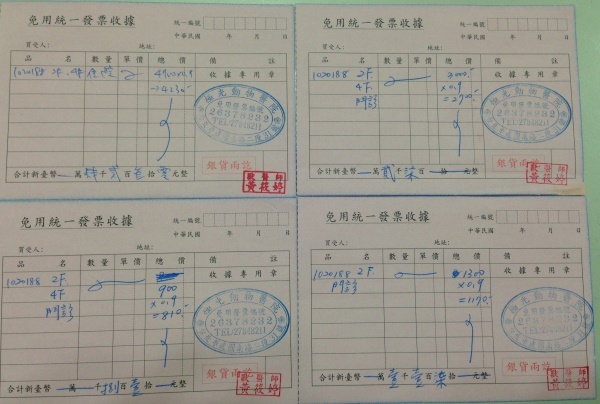 免用統一發票收據
統一編號
中華民國 年 月 日
買受人: 地址:
品名 數量 單價 總價 備註
1020188 2F
收據專用章
動物醫院
免用發票專用
20378232
銀貨兩訖
獸醫師
黃筱婷
合計新台幣 萬 肆 千 貳 百 拾 元整
免用統一發票收據
統一編號
中華民國 年 月 日
買受人: 地址:
品名 數量 單價 總價 備註
1020188 2F 3000
收據專用章
4F ×0.9
門診 =2700
動物醫院
20378232
銀貨兩訖
獸醫師
黃筱婷
合計新台幣 萬 貳 千 柒 百 拾 元整
免用統一發票收據
統一編號
中華民國 年 月 日
買受人: 地址:
品名 數量 單價 總價 備註
1020188 2F
收據專用章
4F 900
門診 ×0.9
=810
動物醫院
20378232
銀貨兩訖
獸醫師
黃筱婷
合計新台幣 萬 千 捌 百 壹 拾 元整
免用統一發票收據
統一編號
中華民國 年 月 日
買受人: 地址:
品名 數量 單價 總價 備註
1020188 2F 1300
收據專用章
門診 ×0.9
=1170
動物醫院
20378232
銀貨兩訖
獸醫師
黃筱婷
合計新台幣 萬 壹 千 壹 百 柒 拾 元整